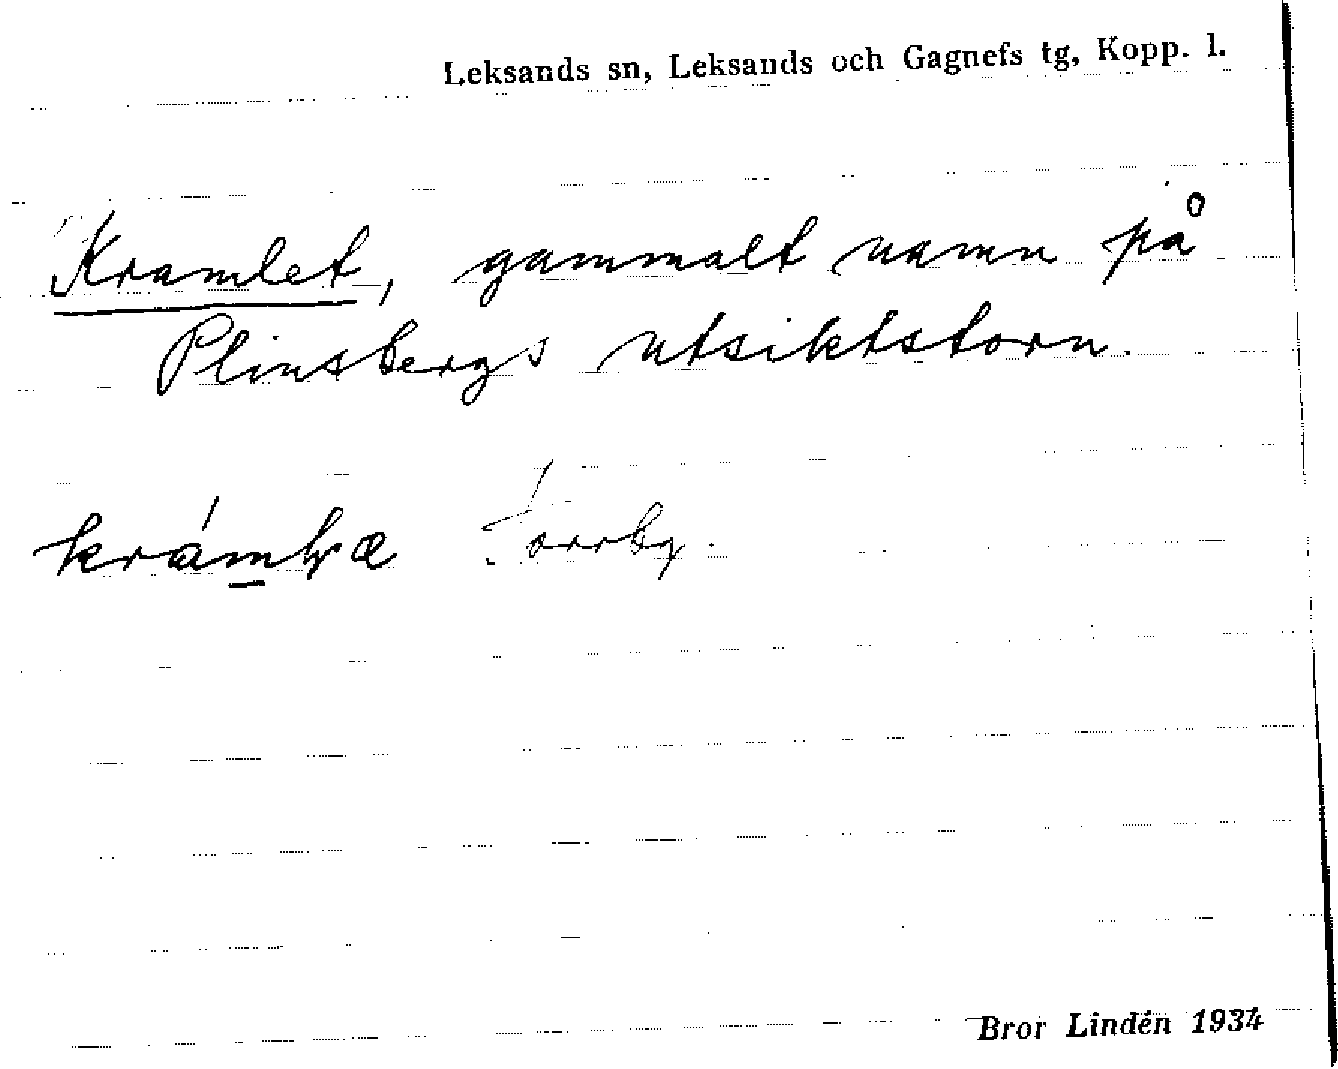 Leksands sn, Leksands och Gagnefs tg, Kopp. l.
Kramlet, gammalt namn på
Plinsbergs utsiktstorn.
Torrby.
Bror Lindén 1934